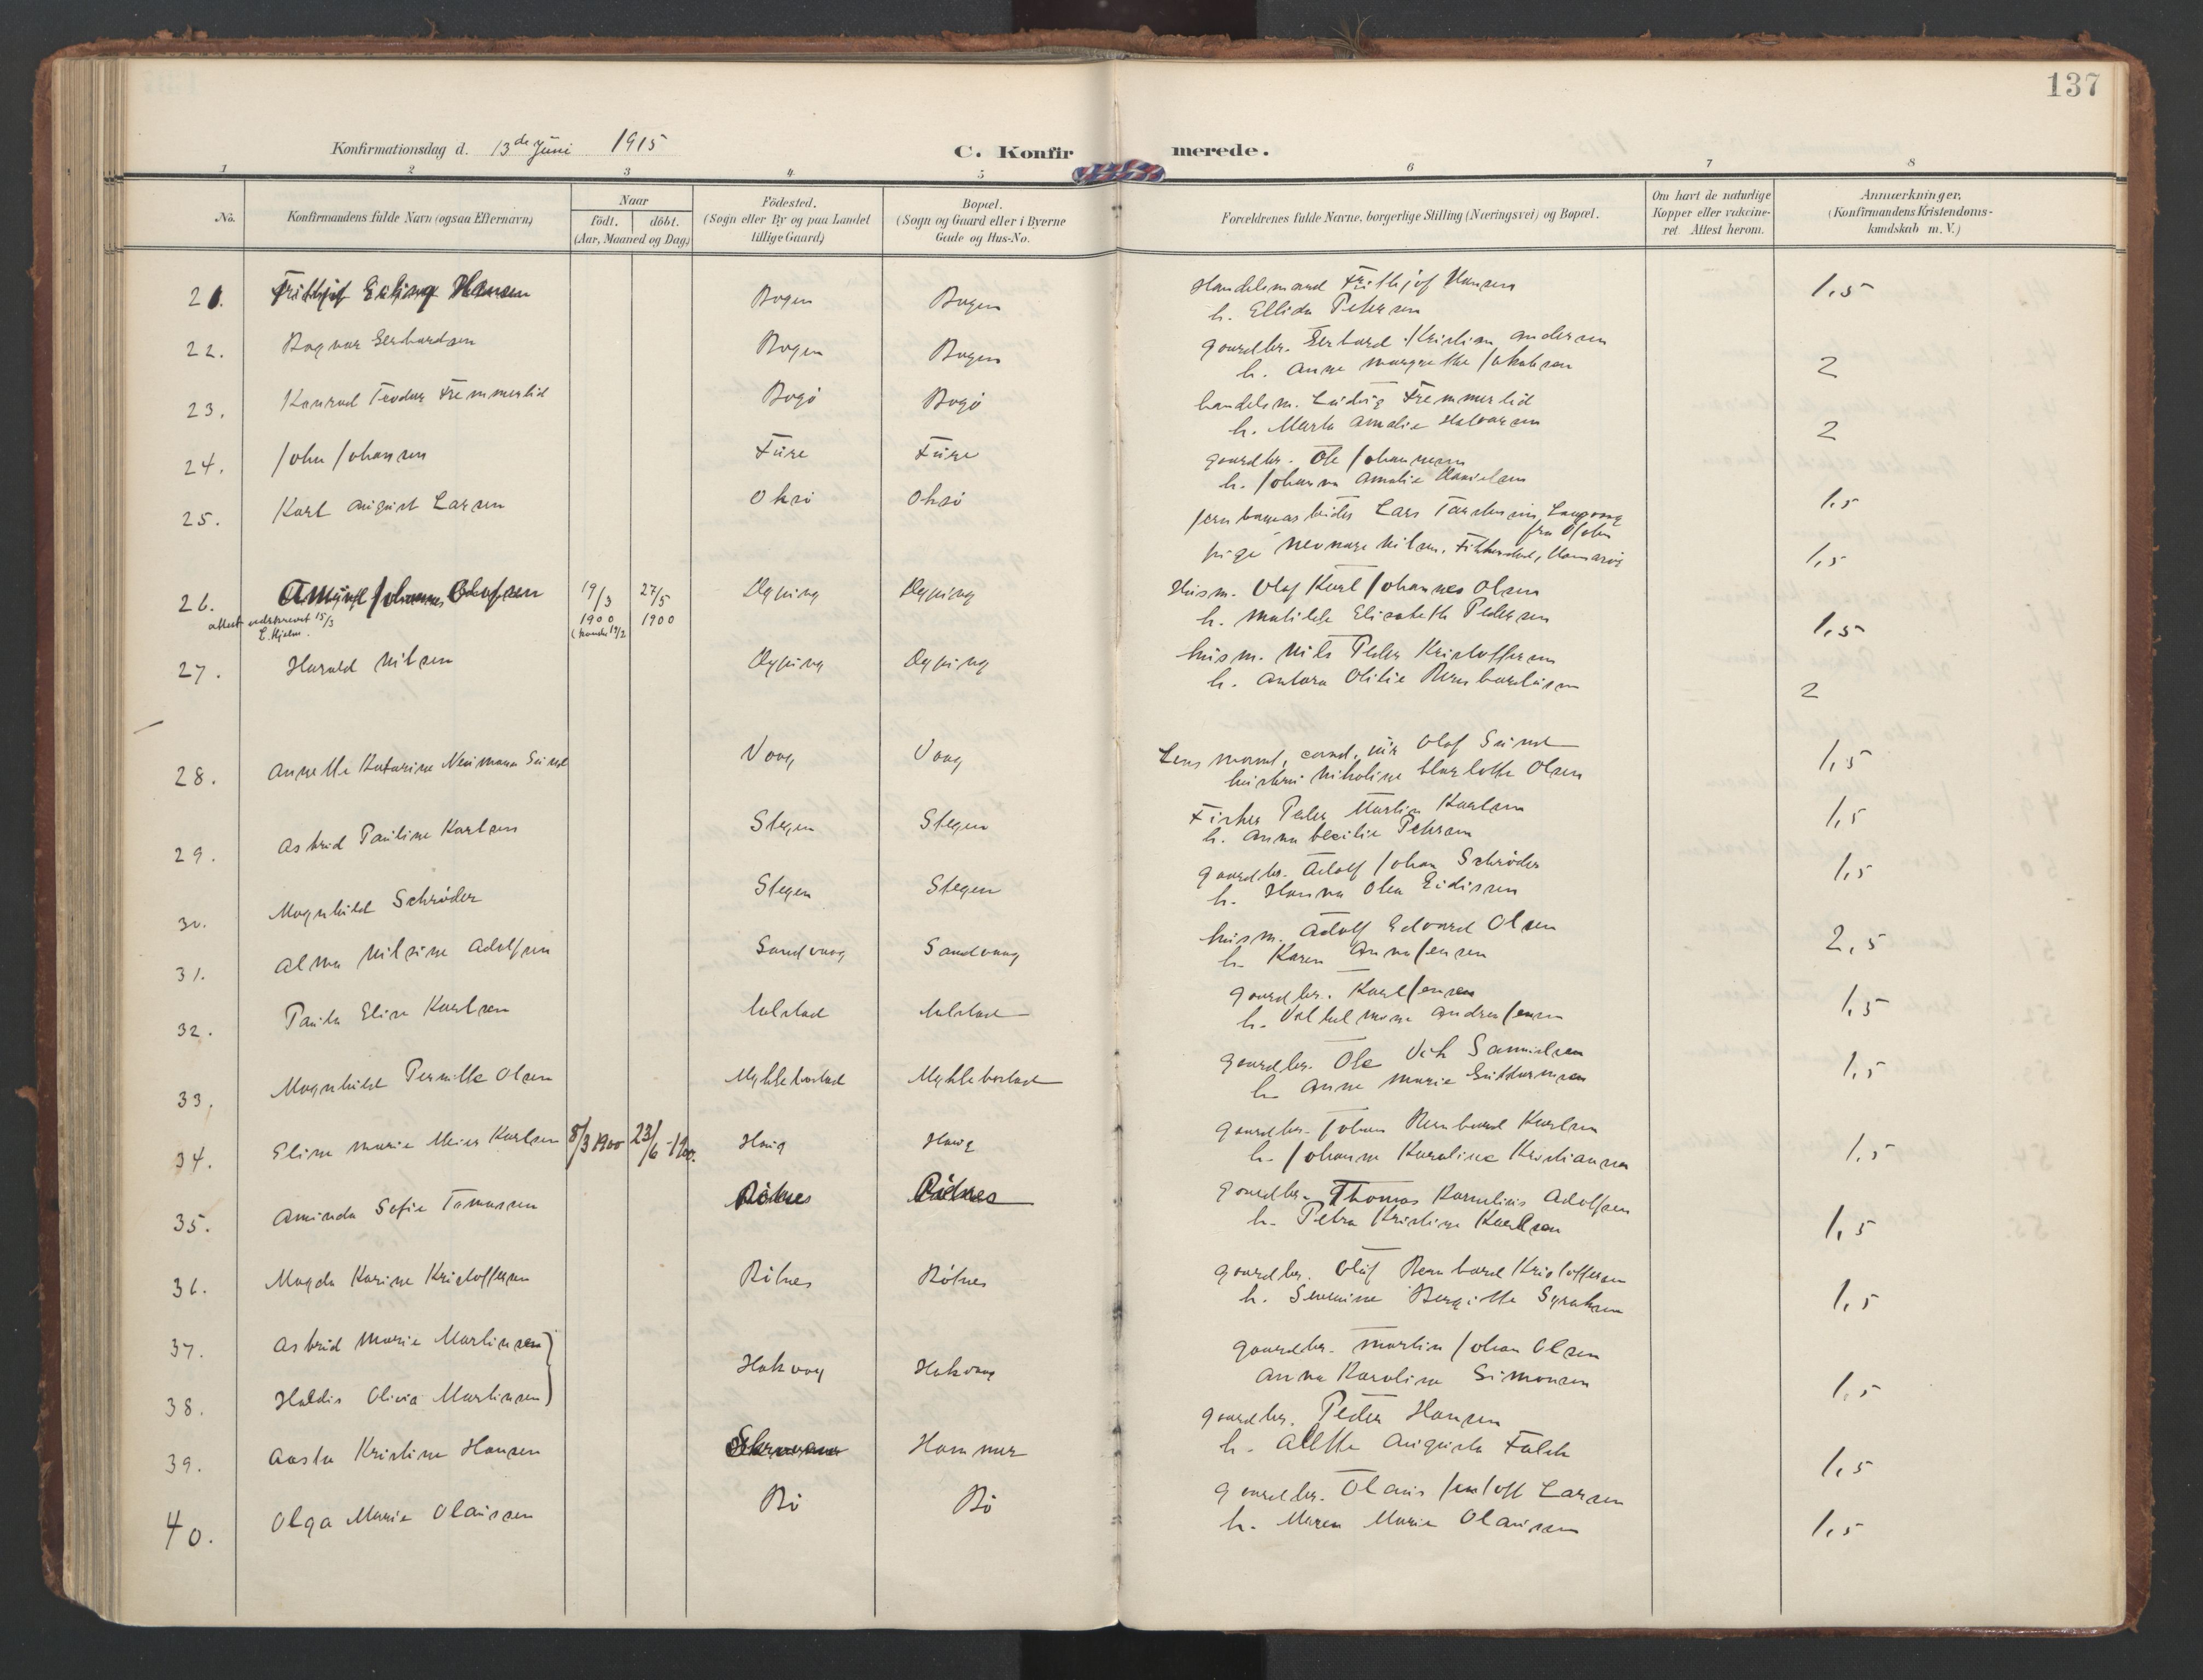 137
Konfirmationsdag d. 13de Juni 1915
C. Konfirmerede.
1 2 3 4 5 6 7 8
No.
Konfirmandens fulde Navn (ogsaa Efternavn)
Naar
født. døbt.
(Aar, Maaned og Dag)
Födested.
(Sogn eller By og paa Landet
tillige Gaard)
Bopæl.
(Sogn og Gaard eller i Byerne
Gade og Hus-No.
Forældrenes fulde Navne, borgerlige Stilling (Næringsvei) og Bopæl.
Om havt de naturlige
Kopper eller vakcine-
ret. Attest herom.
Anmærkninger,
(Konfirmandens Kristendoms-
kundskab m. V.)
21. Frithjof Hansen Bogen Bogen Handelsmand Frithjof Hansen 1,5
h. Ellida Petersen
22. Ragnar Gerhardsen Bogen Bogen gaardbr. Gerhard Kristian Andersen
h. Anne Margrethe Jakobsen 2
23. Konrad Teodor Fremmerlid Bogø Bogø handelsm. Ludvig Fremmerlid
h. Marta Amalie Halvarsen 2
24. John Johansen Fure Fure gaardbr. Ole Johannesen
h. Johanna Amalie Danielsen 1,5
25. Karl August Larsen Oksø Oksø Lars
fra
pige Nilsen, Hamarøy 1,5
26. Amund Johannes Olufsen 19/3 1900 27/5 1900 Nypning Nypning Husm. Olaf Karl Johannes Olsen
attest udskrevet 15/3
E. Hjelm.
(kanske 19/2
h. Matilde Elisabeth Pedersen 1,5
27. Harald Nilsen Nypning Nypning husm. Nils Peder Kristoffersen
h. Antora Olilie Bernhardsen 2
28. Annette Katarine Neumann Sund Vaag Vaag Lensmand, cand. jur Olaf Sund 1,5
hustru Nikoline Charlotte Olsen
29. Astrid Pauline Karlsen Stegen Stegen Fisker Peder Martin Karlsen 1,5
h. Anna Cecilie Petersen
30. Magnhild Schrøder Stegen Stegen gaardbr. Adolf Johan Schrøder 1,5
h. Hanna Olea Eidissen
31. Alma Nilsine Adolfsen Sandvaag Sandvaag husm. Adolf Edvard Olsen 2,5
h. Karen Anna Jensen
32. Paula Elise Karlsen Aalstad Aalstad gaardbr. Karl Jensen 1,5
h. Andrea Jensen
33. Magnhild Pernille Olsen Myklebostad Myklebostad gaardbr. Ole Vik Samuelsen 1,5
h. Anne Marie Guttormsen
34. Eline Marie Meier Karlsen 8/3 1900 23/6-1900. Haug Haug gaardbr. Johan Bernhard Karlsen 1,5
h. Johanne Karoline Kristiansen
35. Aminda Sofie Tomassen Rötnes Rötnes gaardbr. Thomas Kornelius Adolfsen 1,5
h. Petra Kristine Karlsen
36. Magda Karine Kristoffersen Rötnes Rötnes gaardbr. Oluf Bernhard Kristoffersen 1,5
h. Severine Bergitte Syraksen
37. Astrid Marie Martinsen
38. Haldis Olivia Martinsen Hakvaag Hakvaag gaardbr. Martin Johan Olsen
Anna Karoline Simonsen 1,5
39. Aasta Kristine Hansen Hammer gaardbr. Peder Hansen
h. Alette Augusta Falch 1,5
40. Olga Marie Olaussen Bø Bø gaardbr. Olaus Jentoft Larsen
h. Maren Marie Olaussen 1,5